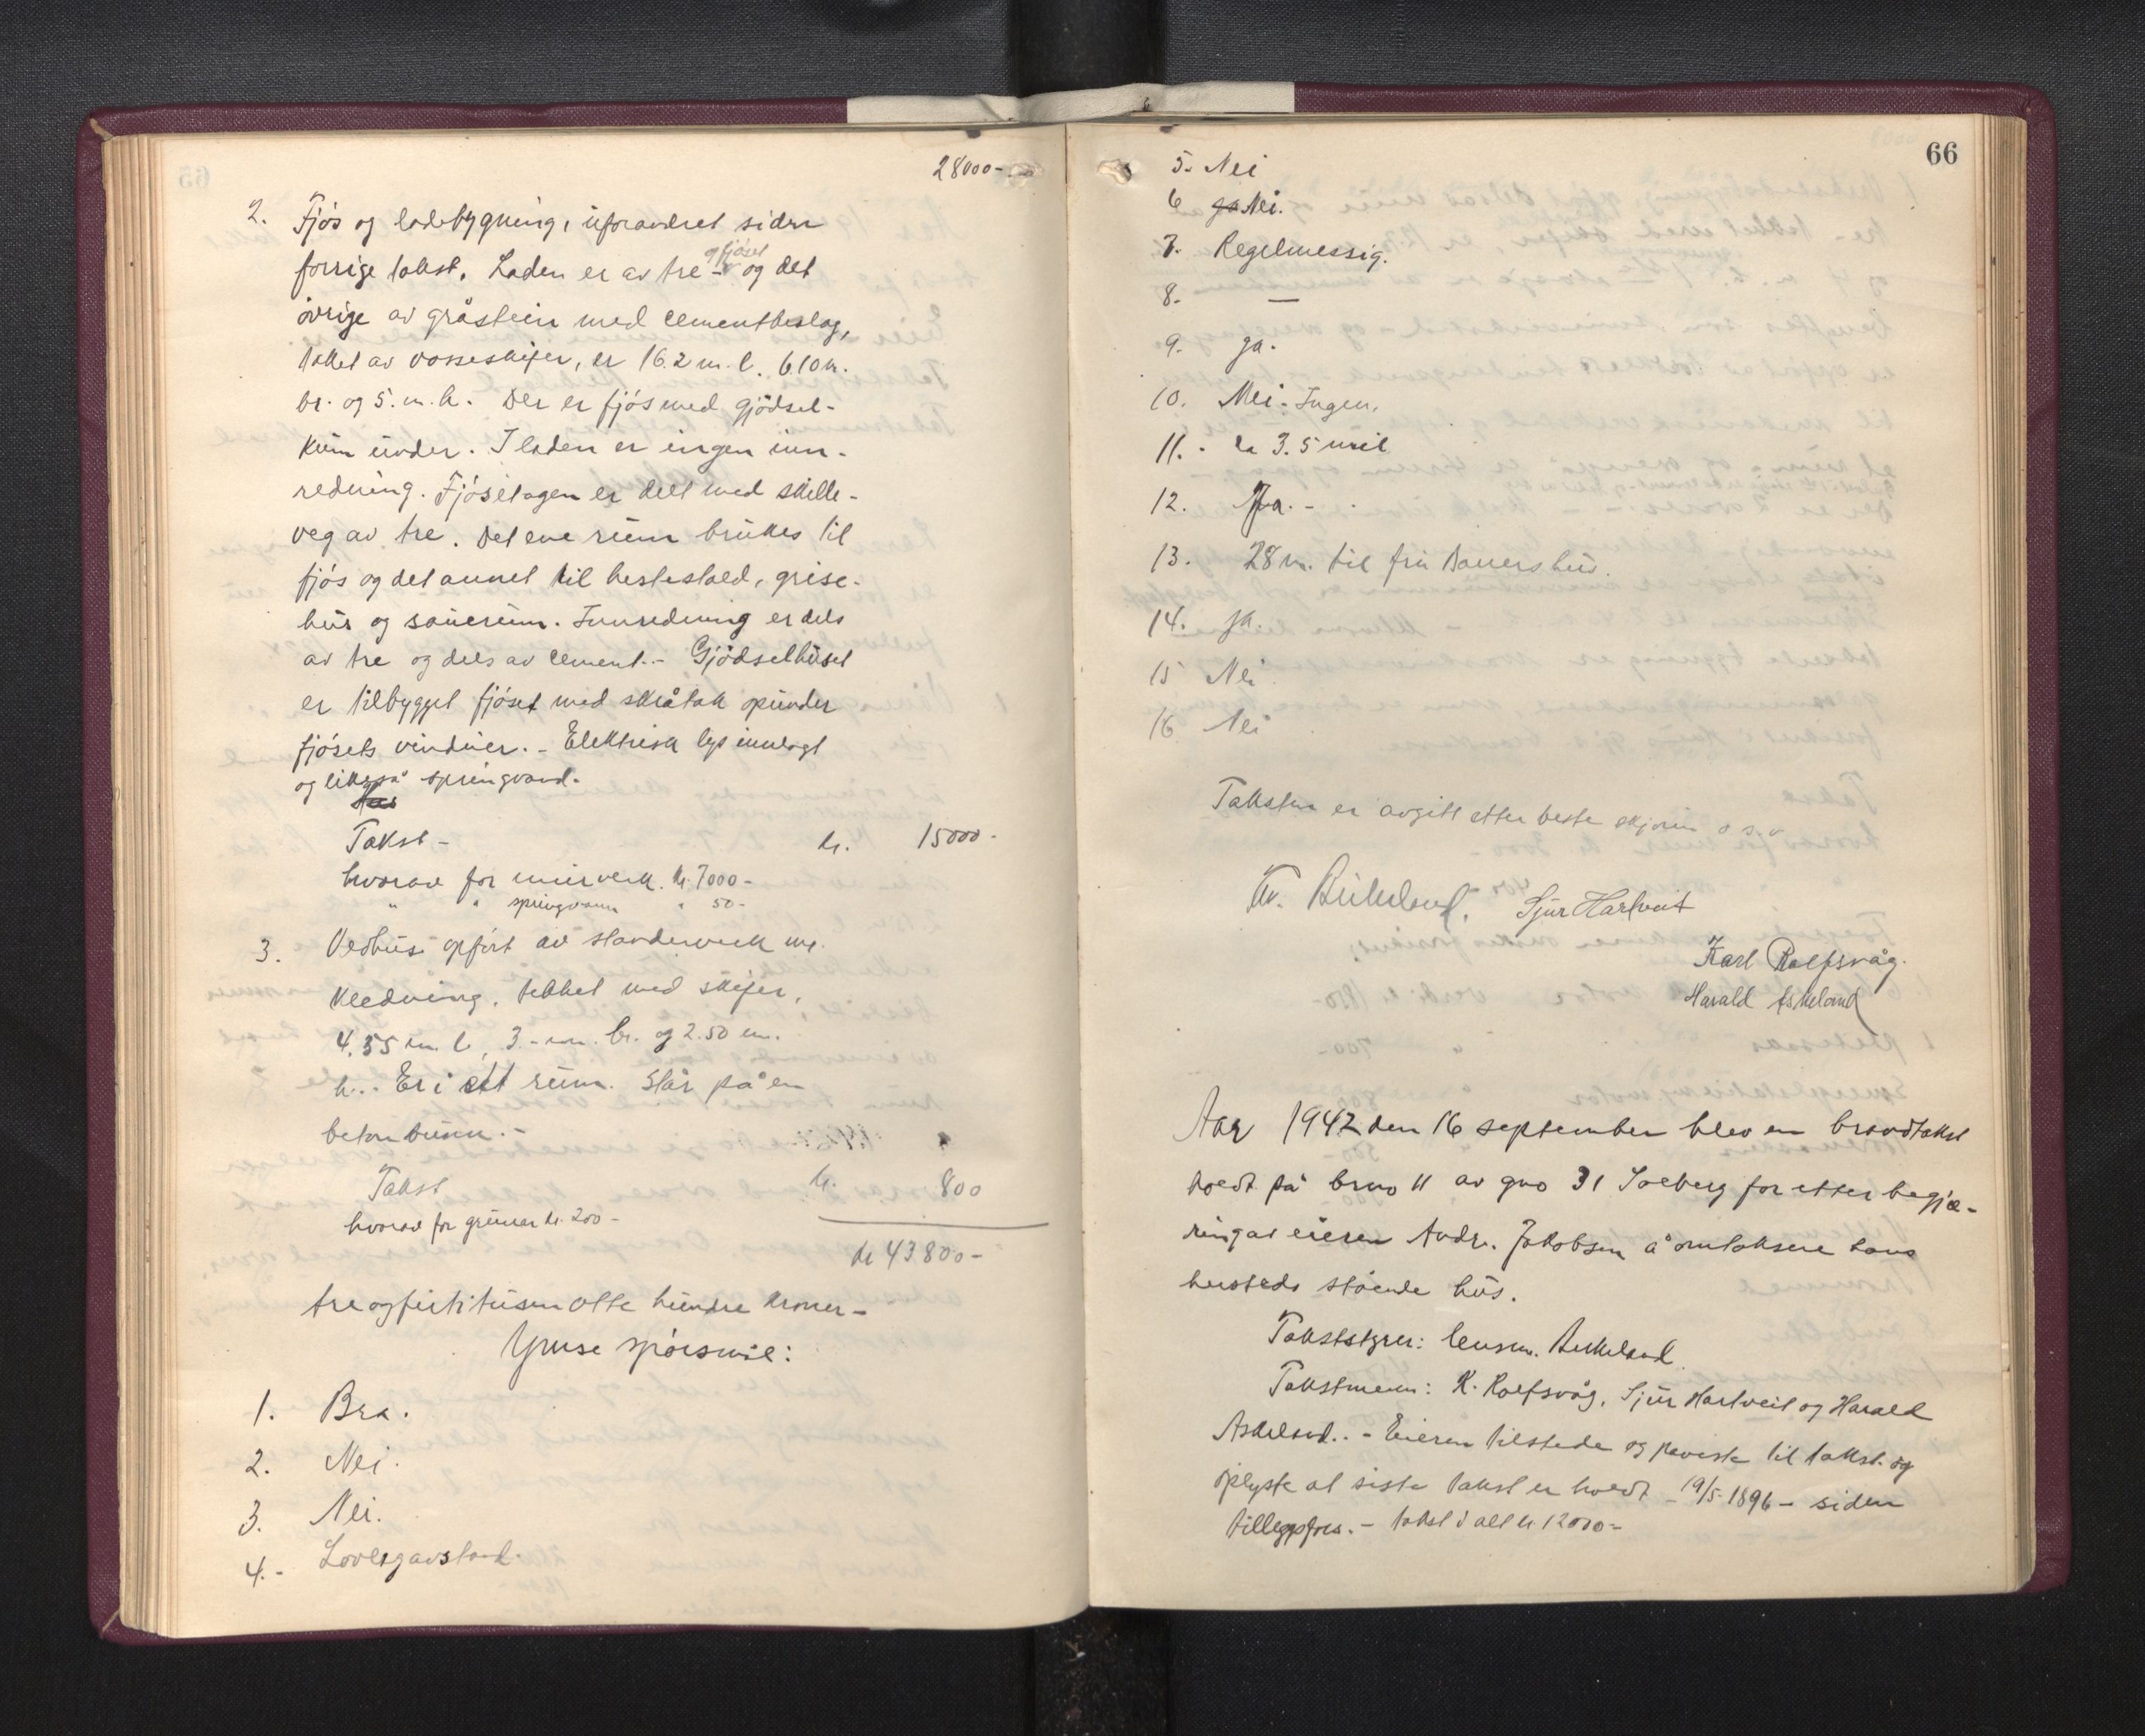 28000-
2. Fjós og ladebygning, uforandret siden
forrige takst. Laden er av tre - og fjöset og det
övrige av gråstein med cementbeslag,
takket av vosseskifer, er 16.2 m. l. 6.10 m.
br. og 5. m. h. Der er fjós med gjödsel-
kum under. I laden er ingen inn-
redning. Fjósetagen er delt med skille-
veg av tre. Det ene rum brukes til
fjós og det annet til hestestald, grise-
hus og sauerum. Innredning er dels
av tre og dels av cement.- Gjödselhuset
er tilbygget fjöset med skråtak opunder
fjósets vinduer. - Elektrisk lys innlagt
og likeså springvand.
Takst - kr. 15000-
hvorav for murverk. kr. 7000-
" " springvann " 50-
3. Vedhus opfört av standerverk m.
kledning, tekket med skifer,
4.55 m. l, 3.- m. br. og 2.50 m.
h... Er i ett rum. Står på en
betonbunn.-
Takst kr. 800
hvorav for grunnmur kr. 200-
kr 43800-
treogfirtitusen otte hundre kroner-
Ymse spörsmål:
1. Bra.
2. Nei.
3. Nei.
4.- Lovligavstand.
66
5. Nei
6 ja Nei.
7. Regelmessig.
8. —
9. ja.
10. Nei - Ingen.
11. - ca 3.5 mil
12. Ja. -
13. 28 m. til fru Bauers hus.
14. ja.
15 Nei
16 Nei
Taksten er avgitt etter beste skjønn o s.v
Tr. Birkeland. Sjur Hartveit
Karl Rolfsvåg.
Harald Askeland
Aar 1942 den 16 september blev en brandtakst
holdt på brno 11 av gno 31 Solberg for etter begjæ-
ring av eieren Andr. Jakobsen å omtaksere hans
hersteds stående hus.
Takststyrer: lensm. Birkeland.
Takstmenn: K. Rolfsvåg, Sjur Hartveit og Harald
Askeland.. - Eieren tilstede og paviste til takst og
oplyste at siste takst er holdt - 19/5-1896 - siden
tilleggsfors. - takst i alt kr. 12000-